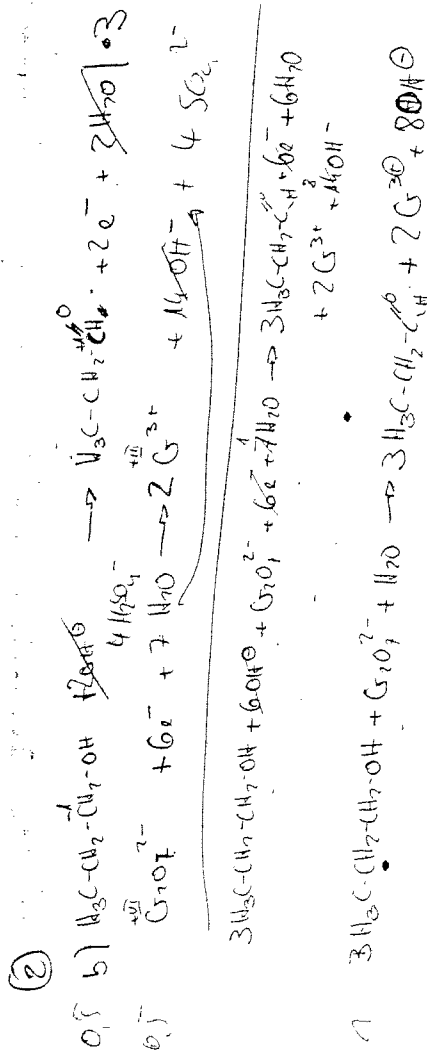 ②
0,5 b) H₃C-CH₂-CH₂-OH → H₃C-CH₂-CHO + 2e⁻ + 2H₂O | ·3
4 H₂SO₄
0,5 Cr₂O₇²⁻ + 6e⁻ + 7 H₂O → 2 Cr³⁺ + 14 OH⁻ + 4 SO₄²⁻
3H₃C-CH₂-CH₂-OH + 6OH⊖ + Cr₂O₇²⁻ + 6e⁻ + 7H₂O → 3H₃C-CH₂-C=O H + 6e⁻ + 6H₂O
+ 2Cr³⁺ + 14OH⁻
1 3H₃C-CH₂-CH₂-OH + Cr₂O₇²⁻ + H₂O → 3H₃C-CH₂-C=O H + 2Cr³⊕ + 8OH⊖